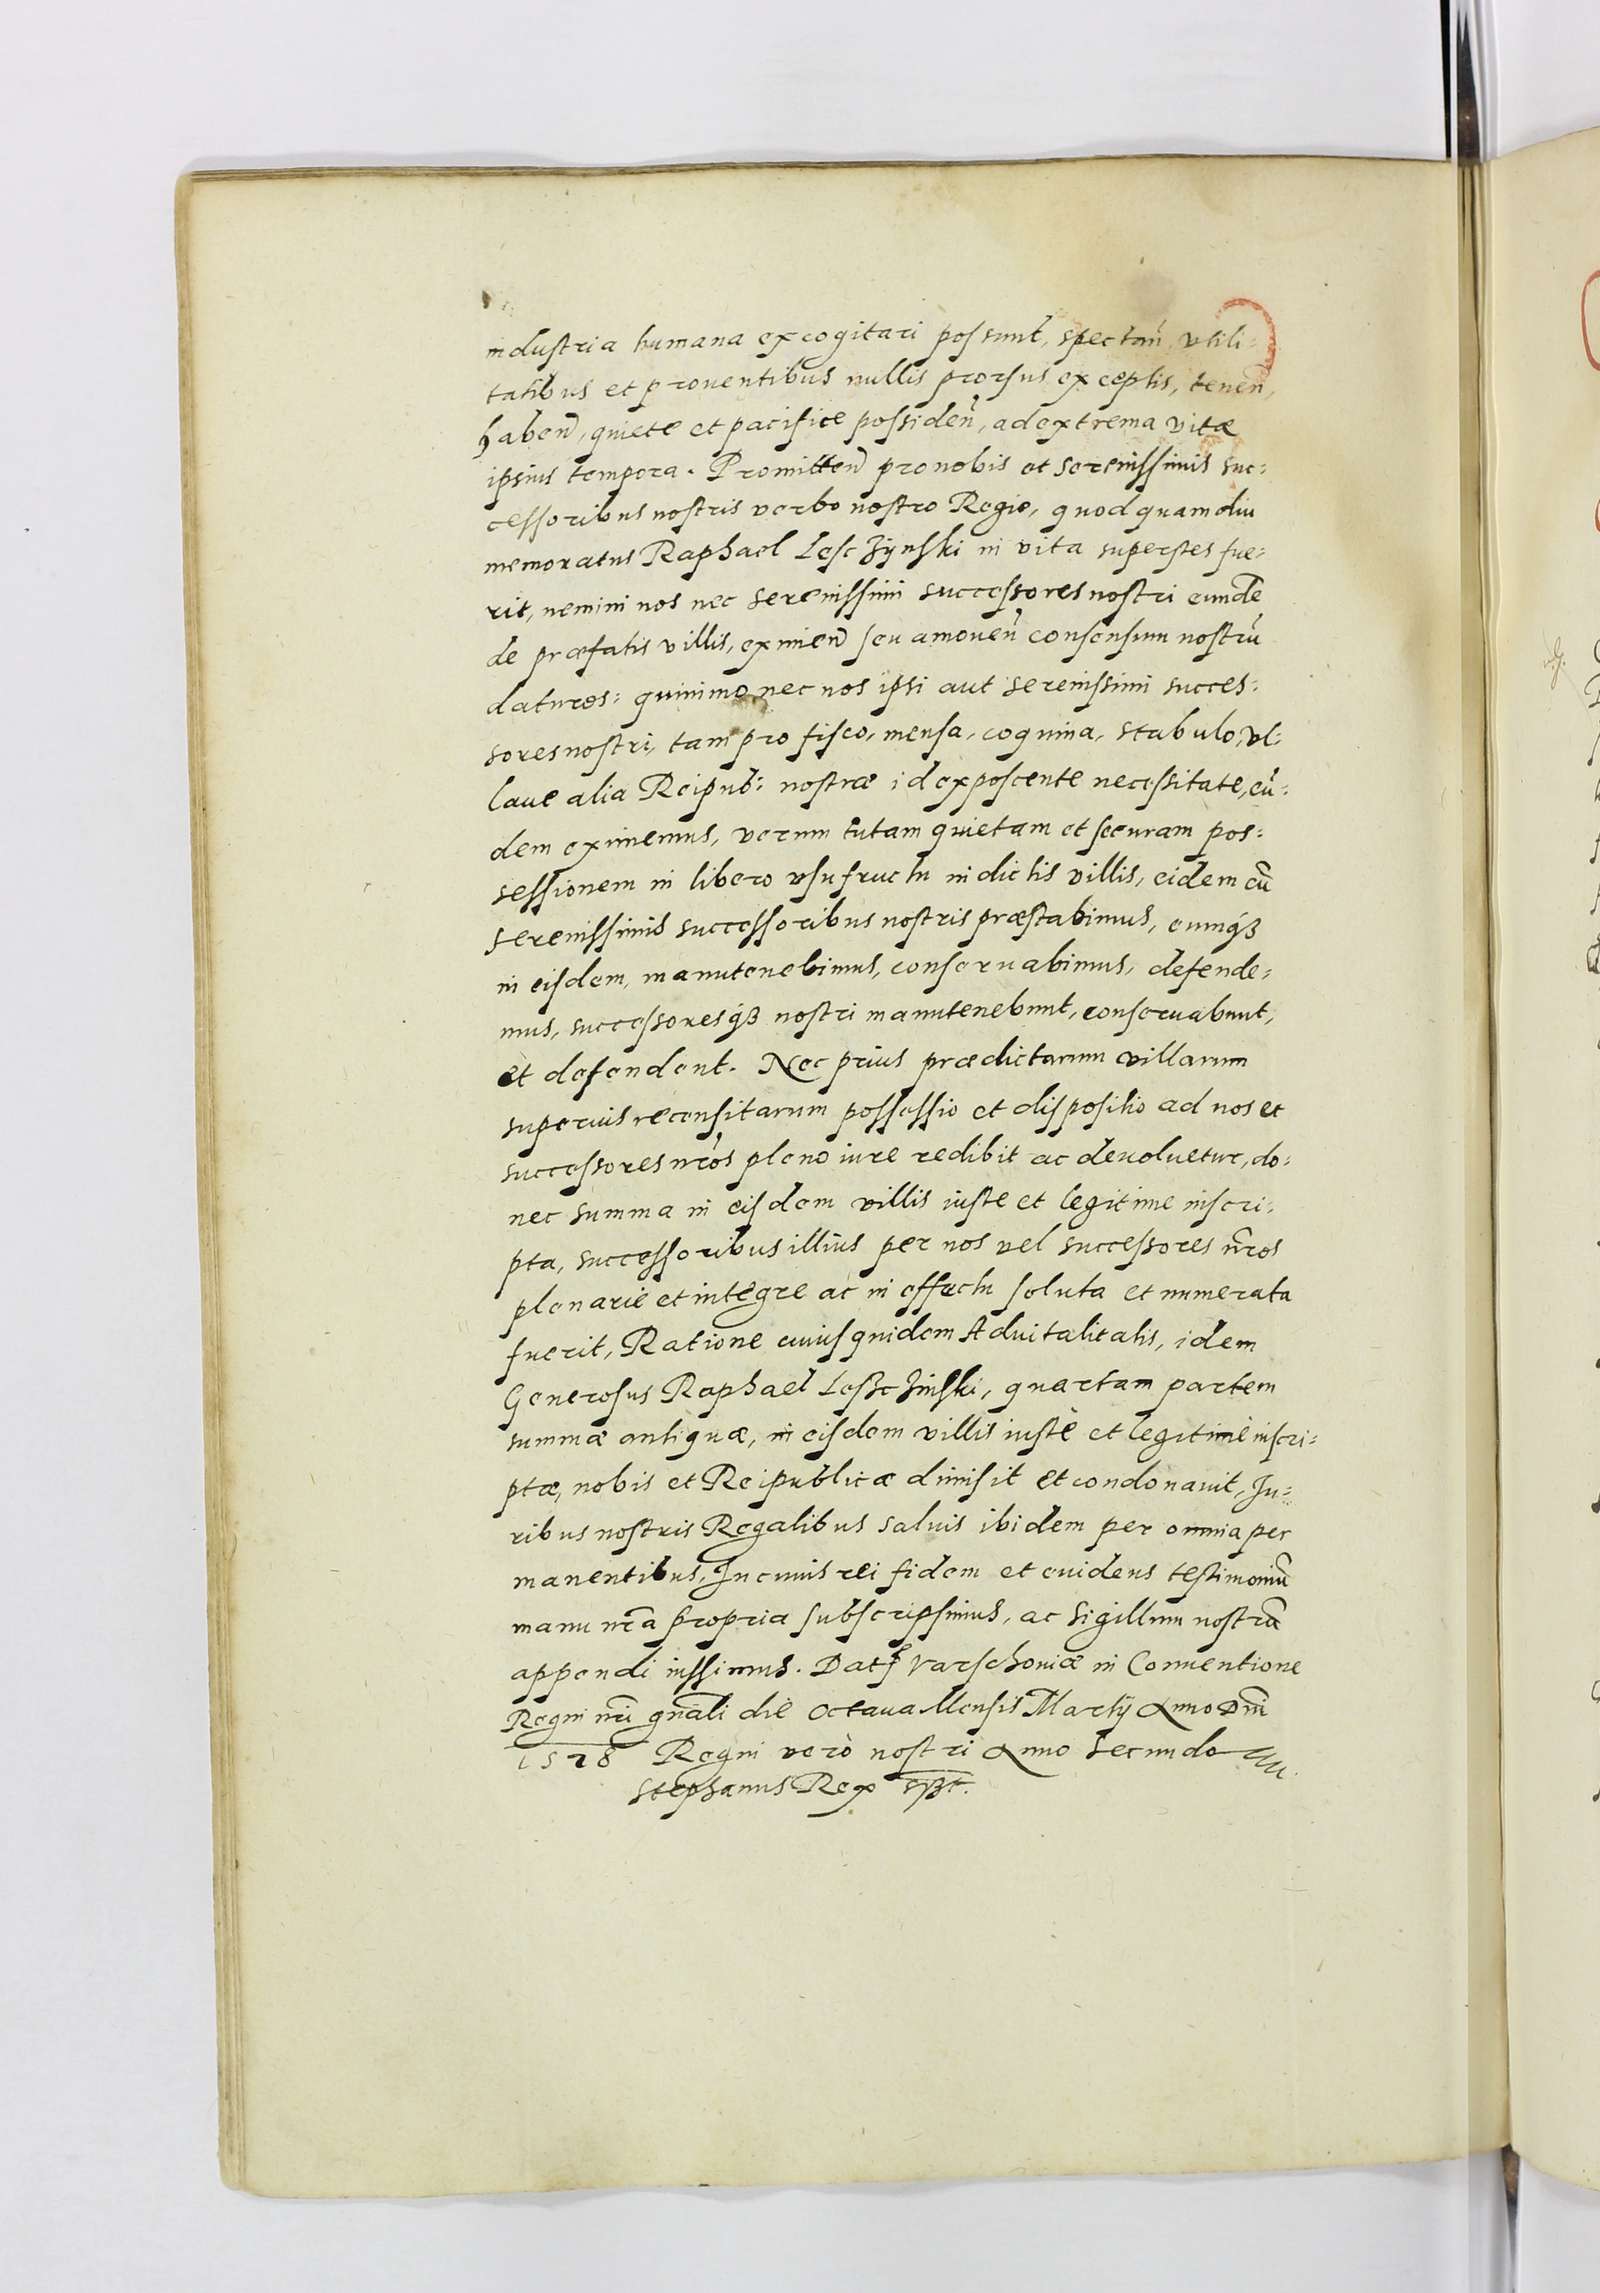 industria humana excogitari possunt, spectan̄ vtili-
tatibus et prouentibus nullis prorsus exceptis, tenen̄,
haben̄, quiete et pacifice possiden̄, ad extrema vitæ
ipsius tempora. Promitten̄ pro nobis et serenissimis suc-
cessoribus nostris verbo nostro Regio, quod quamdiu
memoratus Raphael Lesczÿnski in vita superstes fue-
rit, nemini nos nec serenissimi successores nostri eundē
de præfatis villis, eximen̄ seu amouen̄ consensum nostrū
daturos: quinimo nec nos ipsi aut serenissimi succes-
sores nostri, tam pro fisco, mensa, coquina, stabulo, vl-
laue alia Reipub: nostræ id exposcente necessitate, eū-
dem eximemus, verum tutam quietam et securam pos-
sessionem in libero vsufructu in dictis villis, eidem cū
serenissimis successoribus nostris præstabimus, eumqꝫ
in eisdem, manutenebimus, conseruabimus, defende-
mus, successoresqꝫ nostri manutenebunt, conseruabunt,
et defendent. Nec prius prædictarum villarum
superius recensitarum possessio et dispositio ad nos et
successores nr̄os pleno iure redibit ac deuoluetur, do-
nec summa in eisdem villis iuste et legitime inscri-
pta, successoribus illius per nos vel successores nr̄os
plenarie et integre ac in effectu soluta et numerata
fuerit, Ratione cuiusquidem Aduitalitatis, idem
Generosus Raphael Leszczinski, quartam partem
summæ antiquæ, in eisdem villis iustè et legitimè inscri-
ptæ, nobis et Reipublicæ dimisit et condonauit, Iu-
ribus nostris Regalibus saluis ibidem per omnia per
manentibus, In cuius rei fidem et euidens testimoniū
manu nr̄a propria subscripsimus, ac sigillum nostrū
appendi iussimus. Datꝭ Varschouiæ in Conuentione
Regni nr̄i gn̄ali die octaua Mensis Martij Anno Dn̄i
1578 Regni verò nostri Anno secundo
Stephanus Rex sszt.